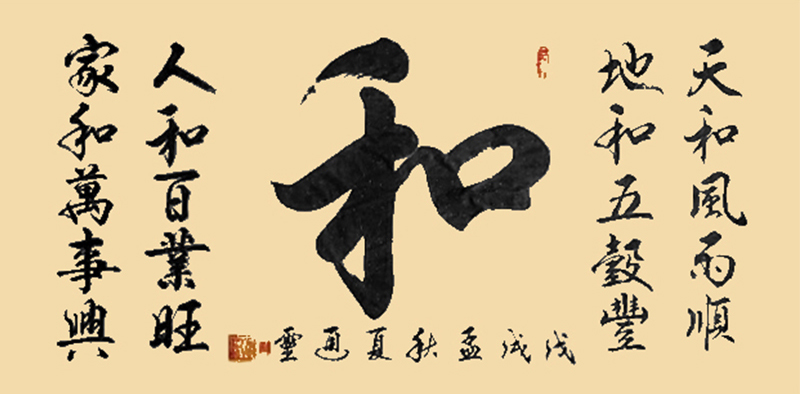 天和風雨順
地和五穀豐
和
人和百業旺
家和萬事興
戊戌孟秋夏通靈